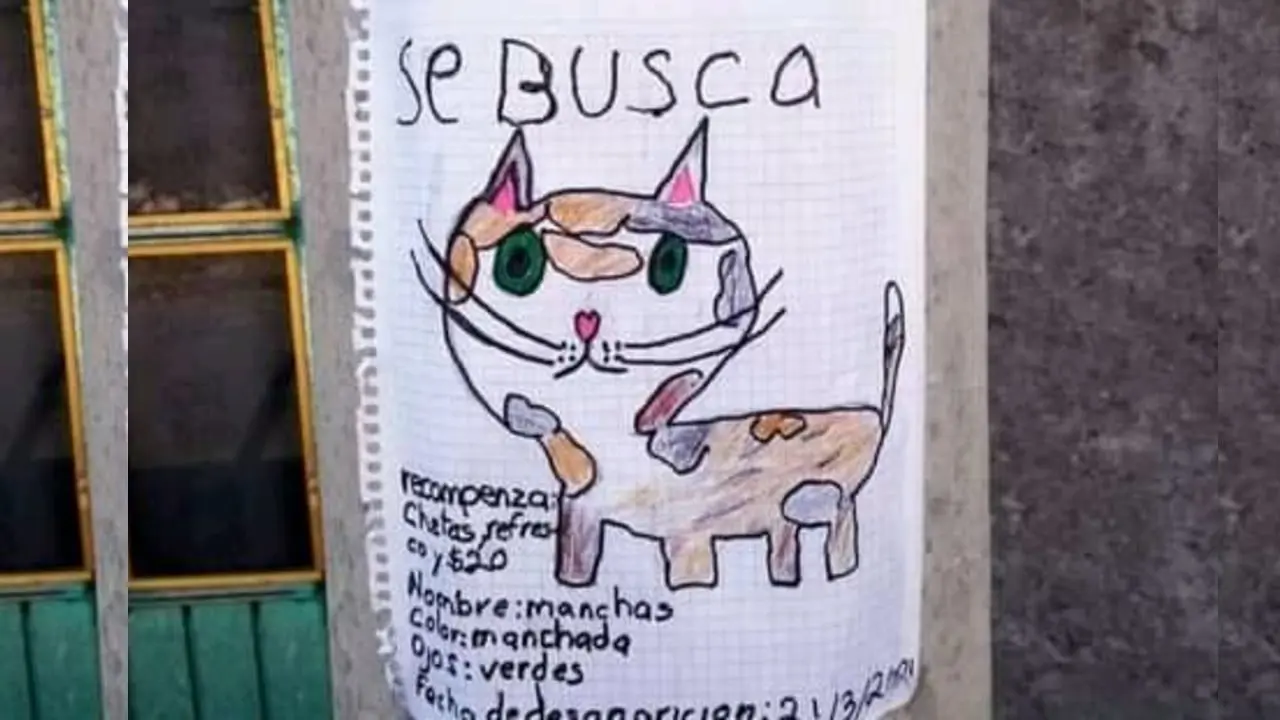 Se BUSCA
recompenza:
Chetos, refres
co y $20
Nombre: manchas
Color: manchada
Ojos: verdes
Fecha de desaparicion: 21/3/